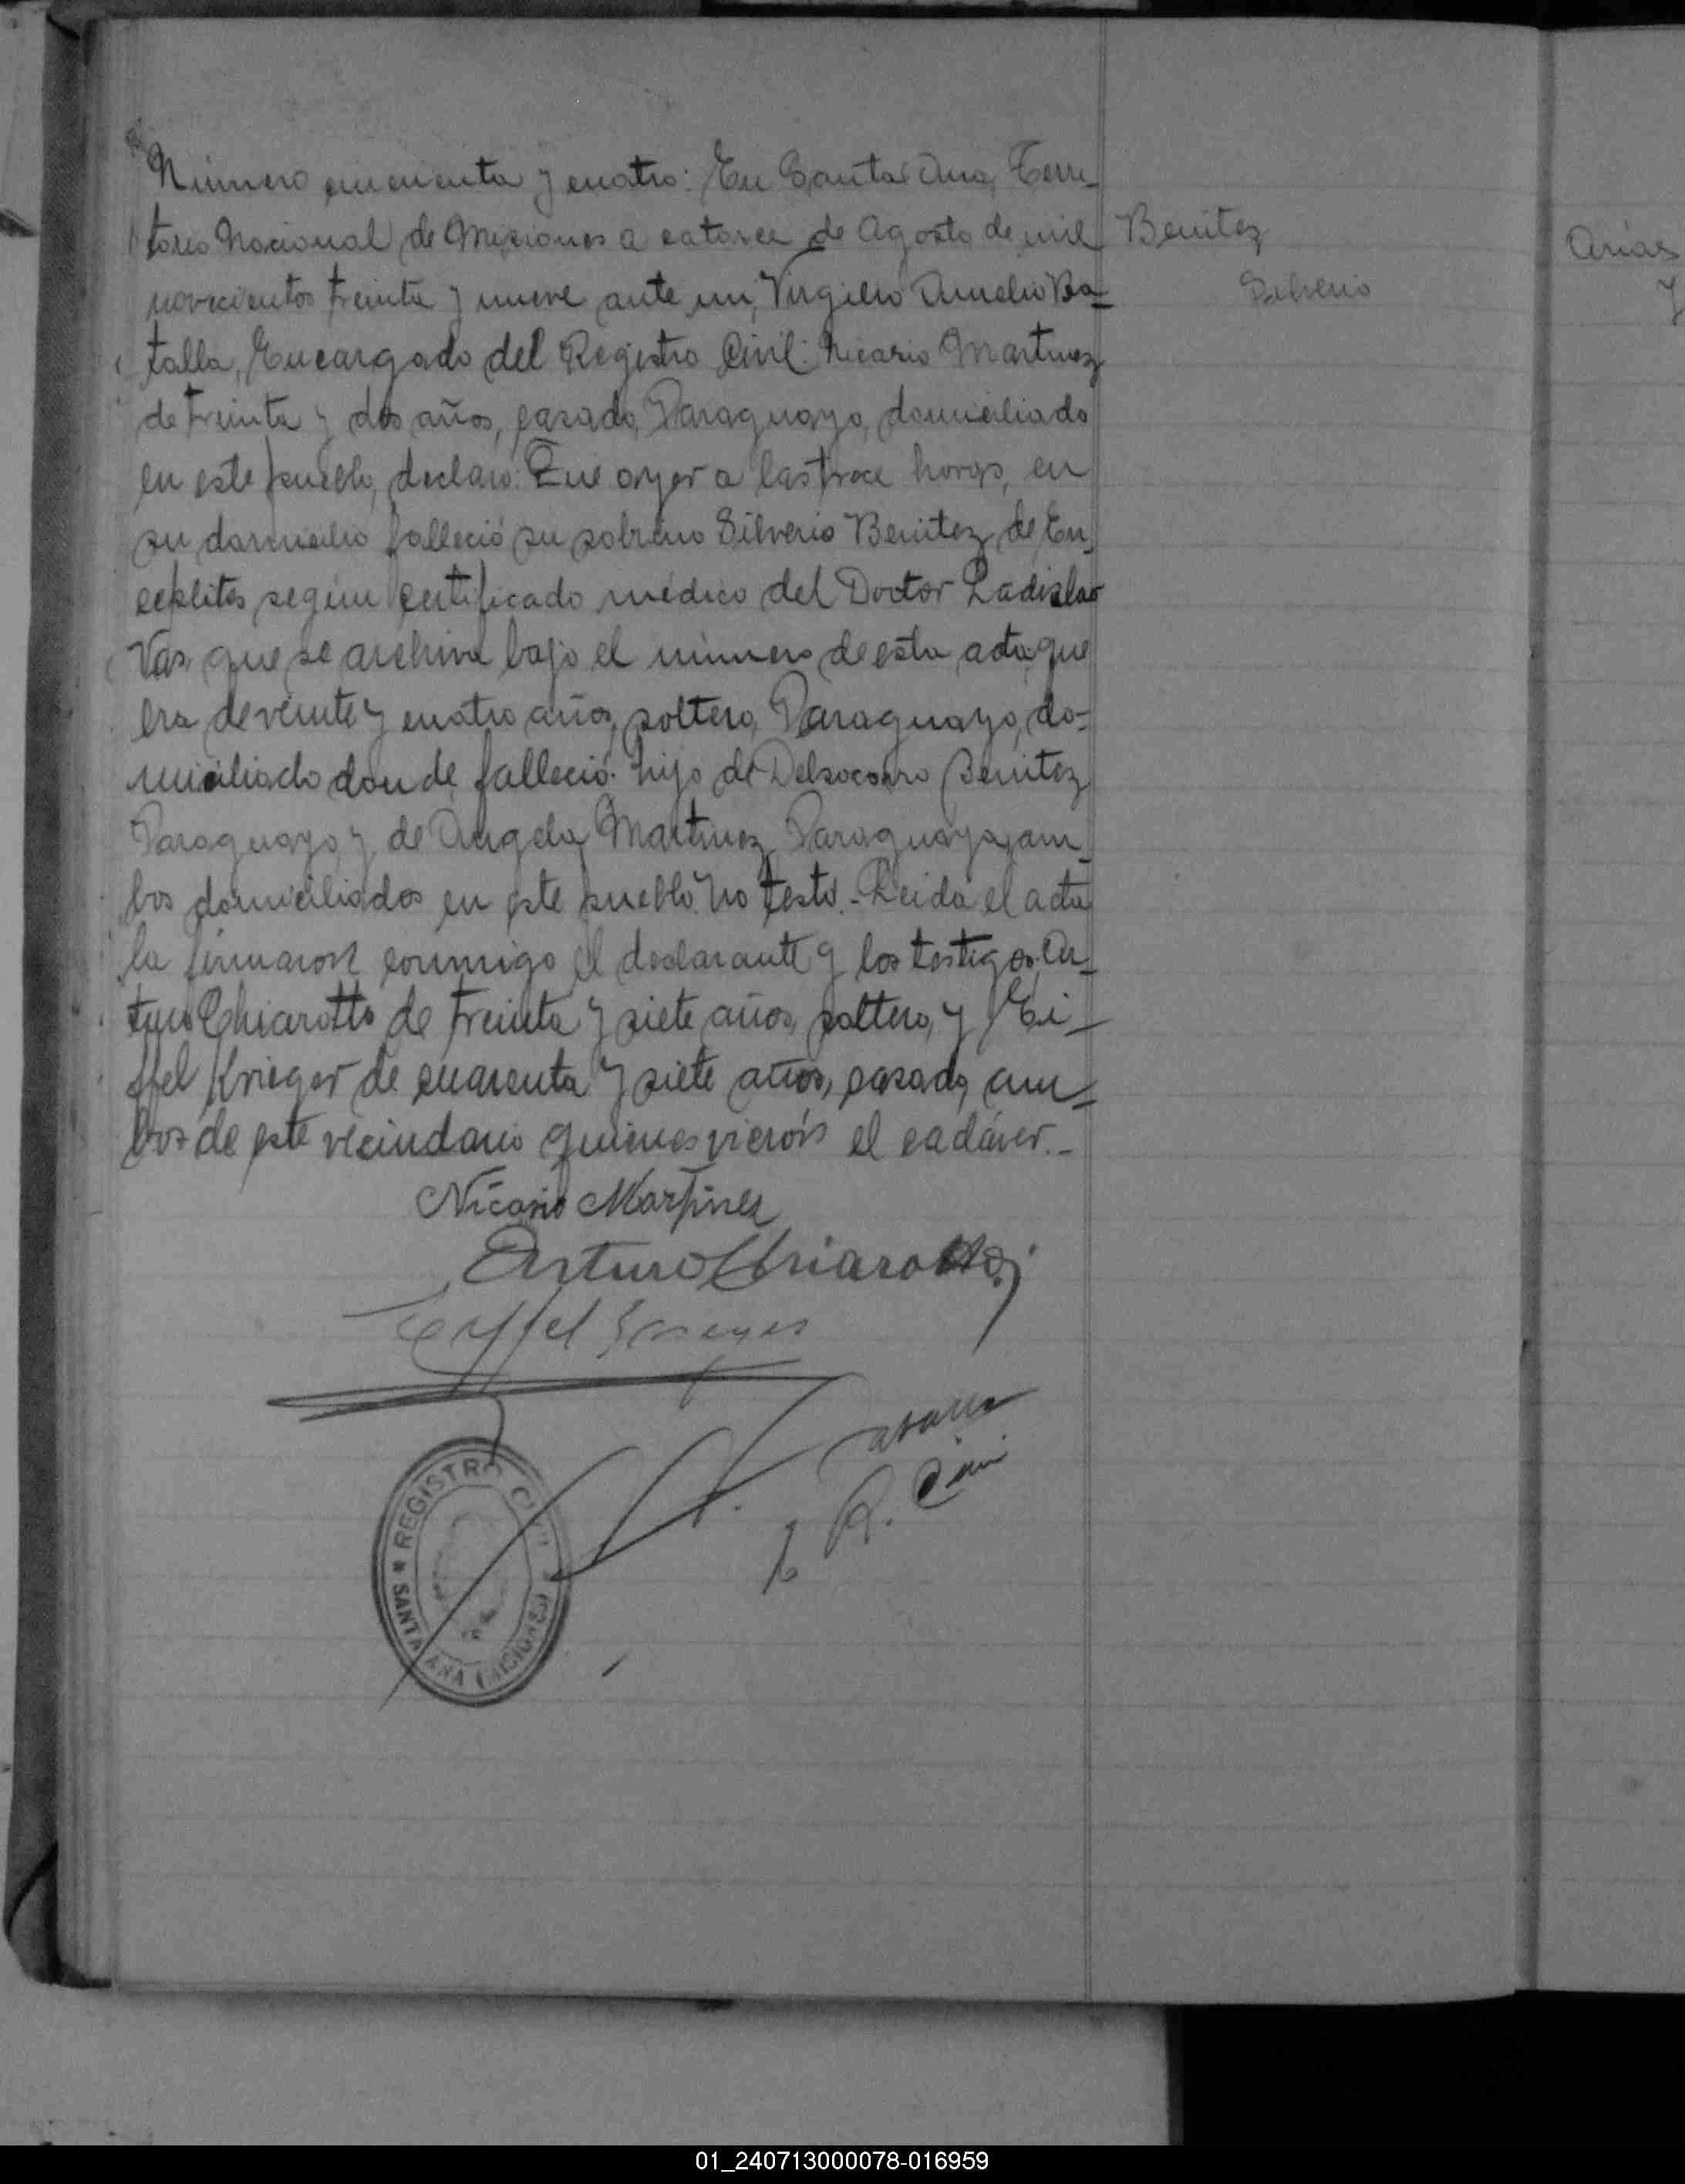 Número cincuenta y cuatro: En Santa Ana, Terri-
torio Nacional de Misiones a catorce de Agosto de mil
novecientos treinta y nueve ante mi, Virgilio Aurelio Ba-
talla, Encargado del Registro Civil: Nicasio Martinez
de treinta y dos años, casado, Paraguayo, domiciliado
en este pueblo, declaró: Que ayer a las trece horas, en
su domicilio falleció su sobrino Silverio Benitez, de En-
ceflitis según certificado médico del Doctor Ladislao
Vas, que se archiva bajo el número de esta acta; que
era de veinte y cuatro años, soltero, Paraguayo, do-
miciliado donde falleció. hijo de Delsocorro Benitez
Paraguayo y de Angela Martinez Paraguaya, am-
bos domiciliados en este pueblo. No testó.- Leida el acta
la firmaron conmigo el declarante y los testigos: Ar-
turo Chiarotto de treinta y siete años, soltero, y Ei-
ffel Krieger de cuarenta y siete años, casado, am-
bos de este vecindario quienes vierón el cadáver.-
Nicasio Martinez
Arturo Chiarotto
Eiffel Krieger
REGISTRO CIVIL
SANTA ANA (MISIONES)
Benitez
Silverio
Arias
01_240713000078-016959